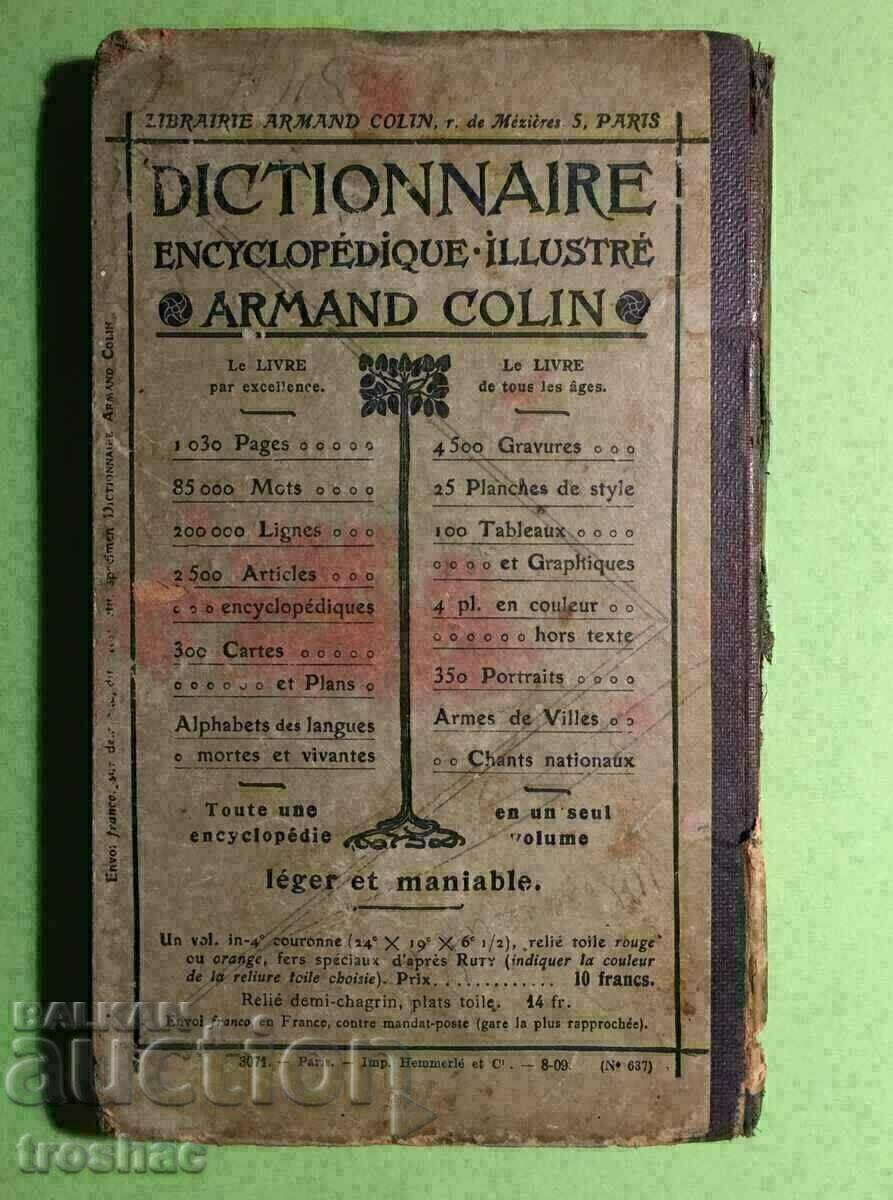 LIBRAIRIE ARMAND COLIN, r. de Mézières 5, PARIS
DICTIONNAIRE
ENCYCLOPÉDIQUE·ILLUSTRÉ
ARMAND COLIN
Le LIVRE
par excellence.
Le LIVRE
de tous les âges.
1 030 Pages
85 000 Mots
200 000 Lignes
2 500 Articles
encyclopédiques
300 Cartes
et Plans
Alphabets des langues
mortes et vivantes
4 500 Gravures
25 Planches de style
100 Tableaux
et Graphiques
4 pl. en couleur
hors texte
350 Portraits
Armes de Villes
Chants nationaux
Toute une
encyclopédie
en un seul
volume
léger et maniable.
Un vol. in-4° couronne (24ᶜ × 19ᶜ × 6ᶜ 1/2), relié toile rouge
ou orange, fers spéciaux d'après RUTY (indiquer la couleur
de la reliure toile choisie). Prix............. 10 francs.
Relié demi-chagrin, plats toile. 14 fr.
Envoi franco en France, contre mandat-poste (gare la plus rapprochée).
3071. — Paris. — Imp. Hemmerlé et Cⁱᵉ. — 8-09. (N° 637)
Envoi franco, sur specimen DICTIONNAIRE ARMAND COLIN
BALKAN
auction
troshac